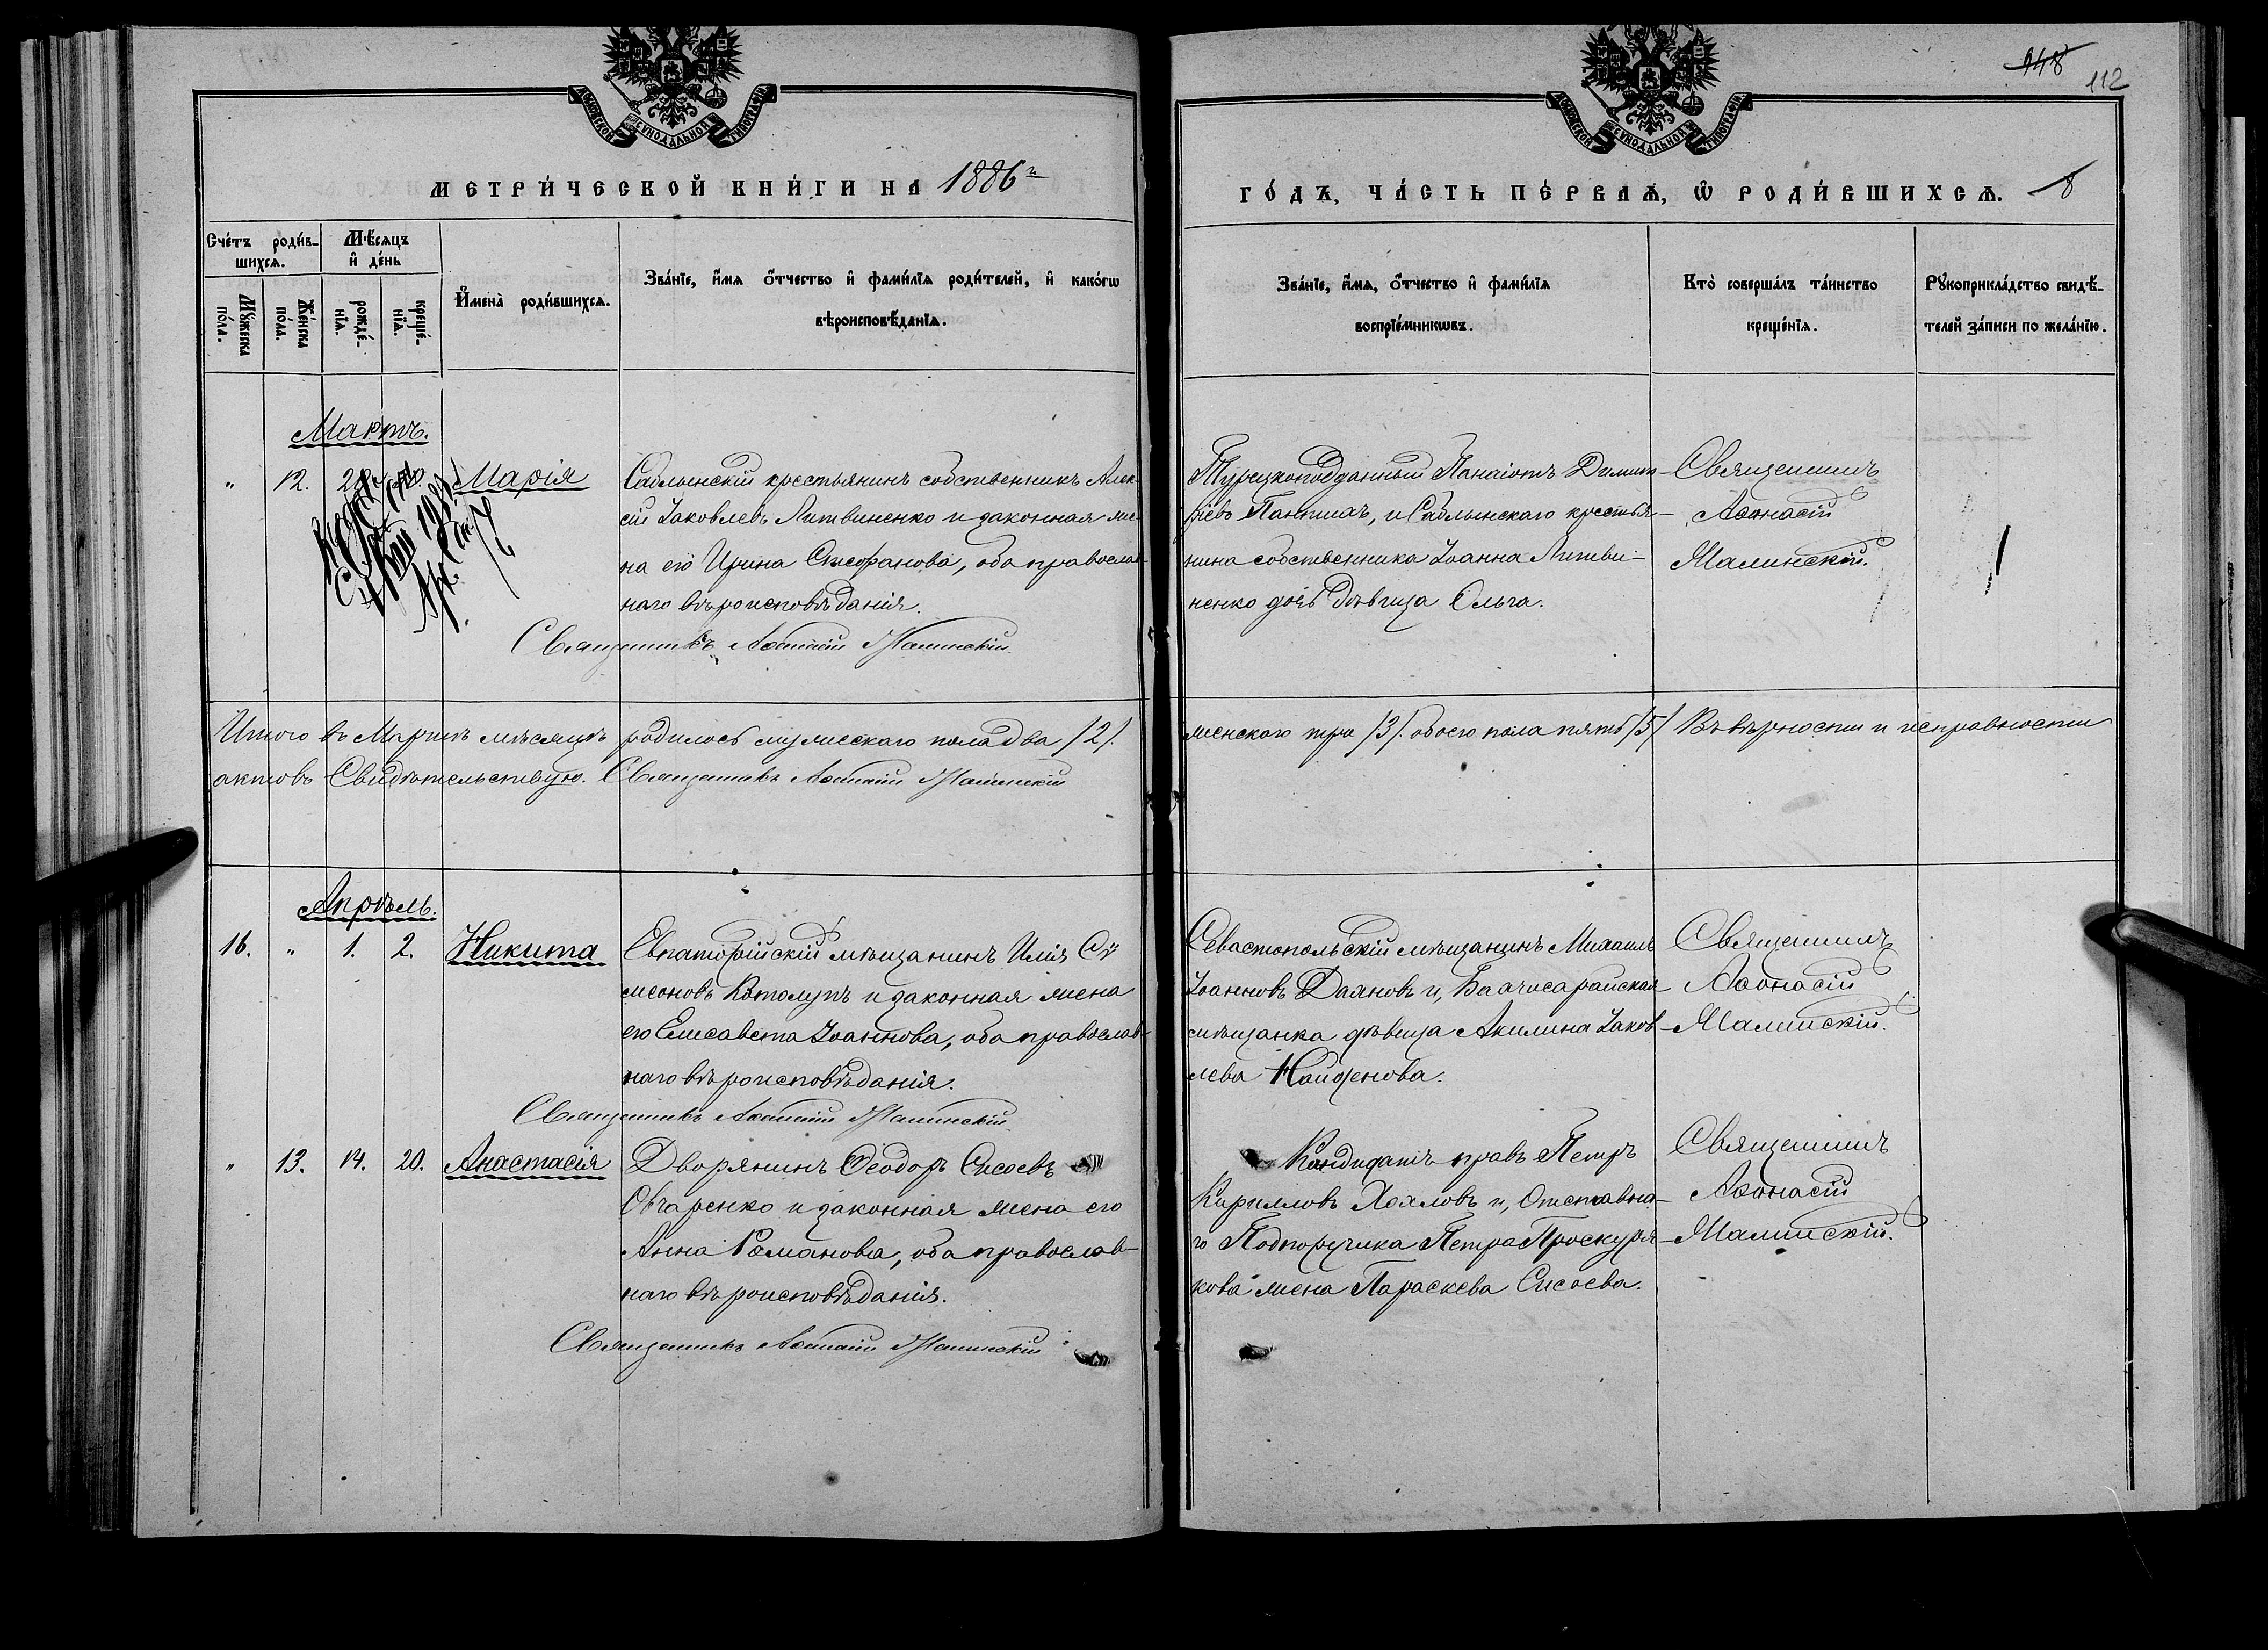 148
112
МОСКОВСКОЙ СѴНОДАЛЬНОЙ ТИПОГРАФІИ
МОСКОВСКОЙ СѴНОДАЛЬНОЙ ТИПОГРАФІИ
МЕТРИ́ЧЕСКОЙ КНИ́ГИ НА 1886 г.
Сче́тъ роди́в-
шихсѧ.
Мѣ́сѧцъ
и҆ де́нь
Мꙋ́жеска
по́ла.
Же́нска
по́ла.
рожде́-
нїѧ.
креще́-
нїѧ.
И҆мена̀ роди́вшихсѧ.
Зва́нїе, и҆́мѧ ѻ҆́тчество и҆ фами́лїѧ роди́телей, и҆ како́гѡ
вѣроисповѣ́данїѧ.
Мартъ.
" 12. Марія
Саблынскій крестьянинъ собственникъ Алек-
сій Іаковлевъ Литвиненко и законная же-
на его Ирина Стефанова, оба православ-
наго вѣроисповѣданія.
Священникъ Аѳанасій Малинскій
Итого въ Мартѣ мѣсяцѣ родилось мужескаго пола два /2/.
актовъ Свидѣтельствую. Священникъ Аѳанасій Малинскій
Апрѣль.
16. " 1. 2. Никита
Евпаторійскій мѣщанинъ Илія Сѵ-
меоновъ Котолупъ и законная жена
его Елисавета Іоаннова, оба православ-
наго вѣроисповѣданія.
Священникъ Аѳанасій Малинскій
" 13. 14. 20. Анастасія
Дворянинъ Ѳеодоръ Сисоевъ
Овчаренко и законная жена его
Анна Романова, оба православ-
наго вѣроисповѣданія.
Священникъ Аѳанасій Малинскій
ГО́ДЪ, ЧА́СТЬ ПЕ́РВАѦ, Ѡ҆ РОДИ́ВШИХСѦ. 8
Зва́нїе, и҆́мѧ, ѻ҆́тчество и҆ фами́лїѧ
воспрїе́мникѡвъ.
Кто̀ соверша́лъ та́инство
креще́нїѧ.
Рꙋкоприкла́дство свидѣ́-
телей за́писи по жела́нїю.
Турецкоподданный Панаіотъ Димит-
ріевъ Пантиаъ, и Саблынскаго крестья-
нина собственника Іоанна Литви-
ненко дочь дѣвица Ольга.
Священникъ
Аѳонасій
Малинскій.
женскаго три /3/. обоего пола пять /5/ Въ вѣрности и исправности
Севастопольскій мѣщанинъ Михаилъ
Іоанновъ Даяновъ и, Бахчисарайская
мѣщанка дѣвица Акилина Іаков-
лева Найденова.
Священникъ
Аѳонасій
Малинскій.
Кандидатъ правъ Петръ
Кирилловъ Хохловъ и, Отставна-
го Подпоручика Петра Проскуря-
кова жена Параскева Сисоева.
Священникъ
Аѳонасій
Малинскій.